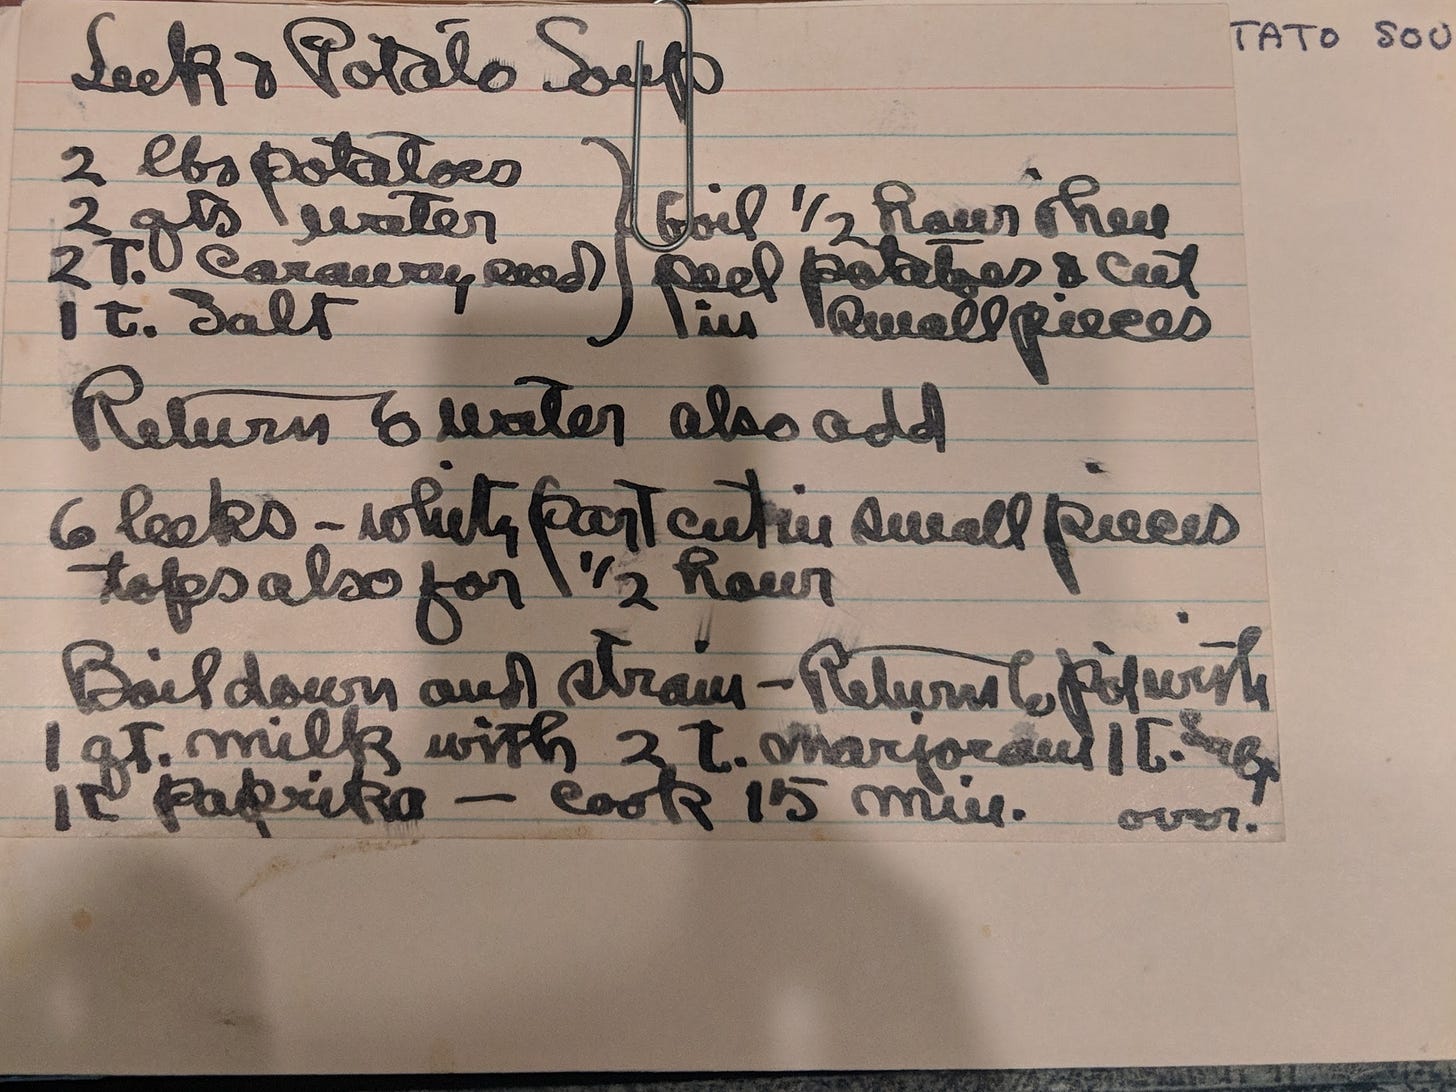 Leek & Potato Soup
TATO SOU
2 lbs potatoes
2 qts water
2 T. Caraway seed
1 t. Salt
boil 1/2 hour then
peel potatoes & cut
in small pieces
Return to water also add
6 leeks - white part cut in small pieces
tops also for 1/2 hour
Boil down and strain - Return to pot with
1 qt. milk with 2 t. marjoram 1 t.
1 t paprika - cook 15 min. over.